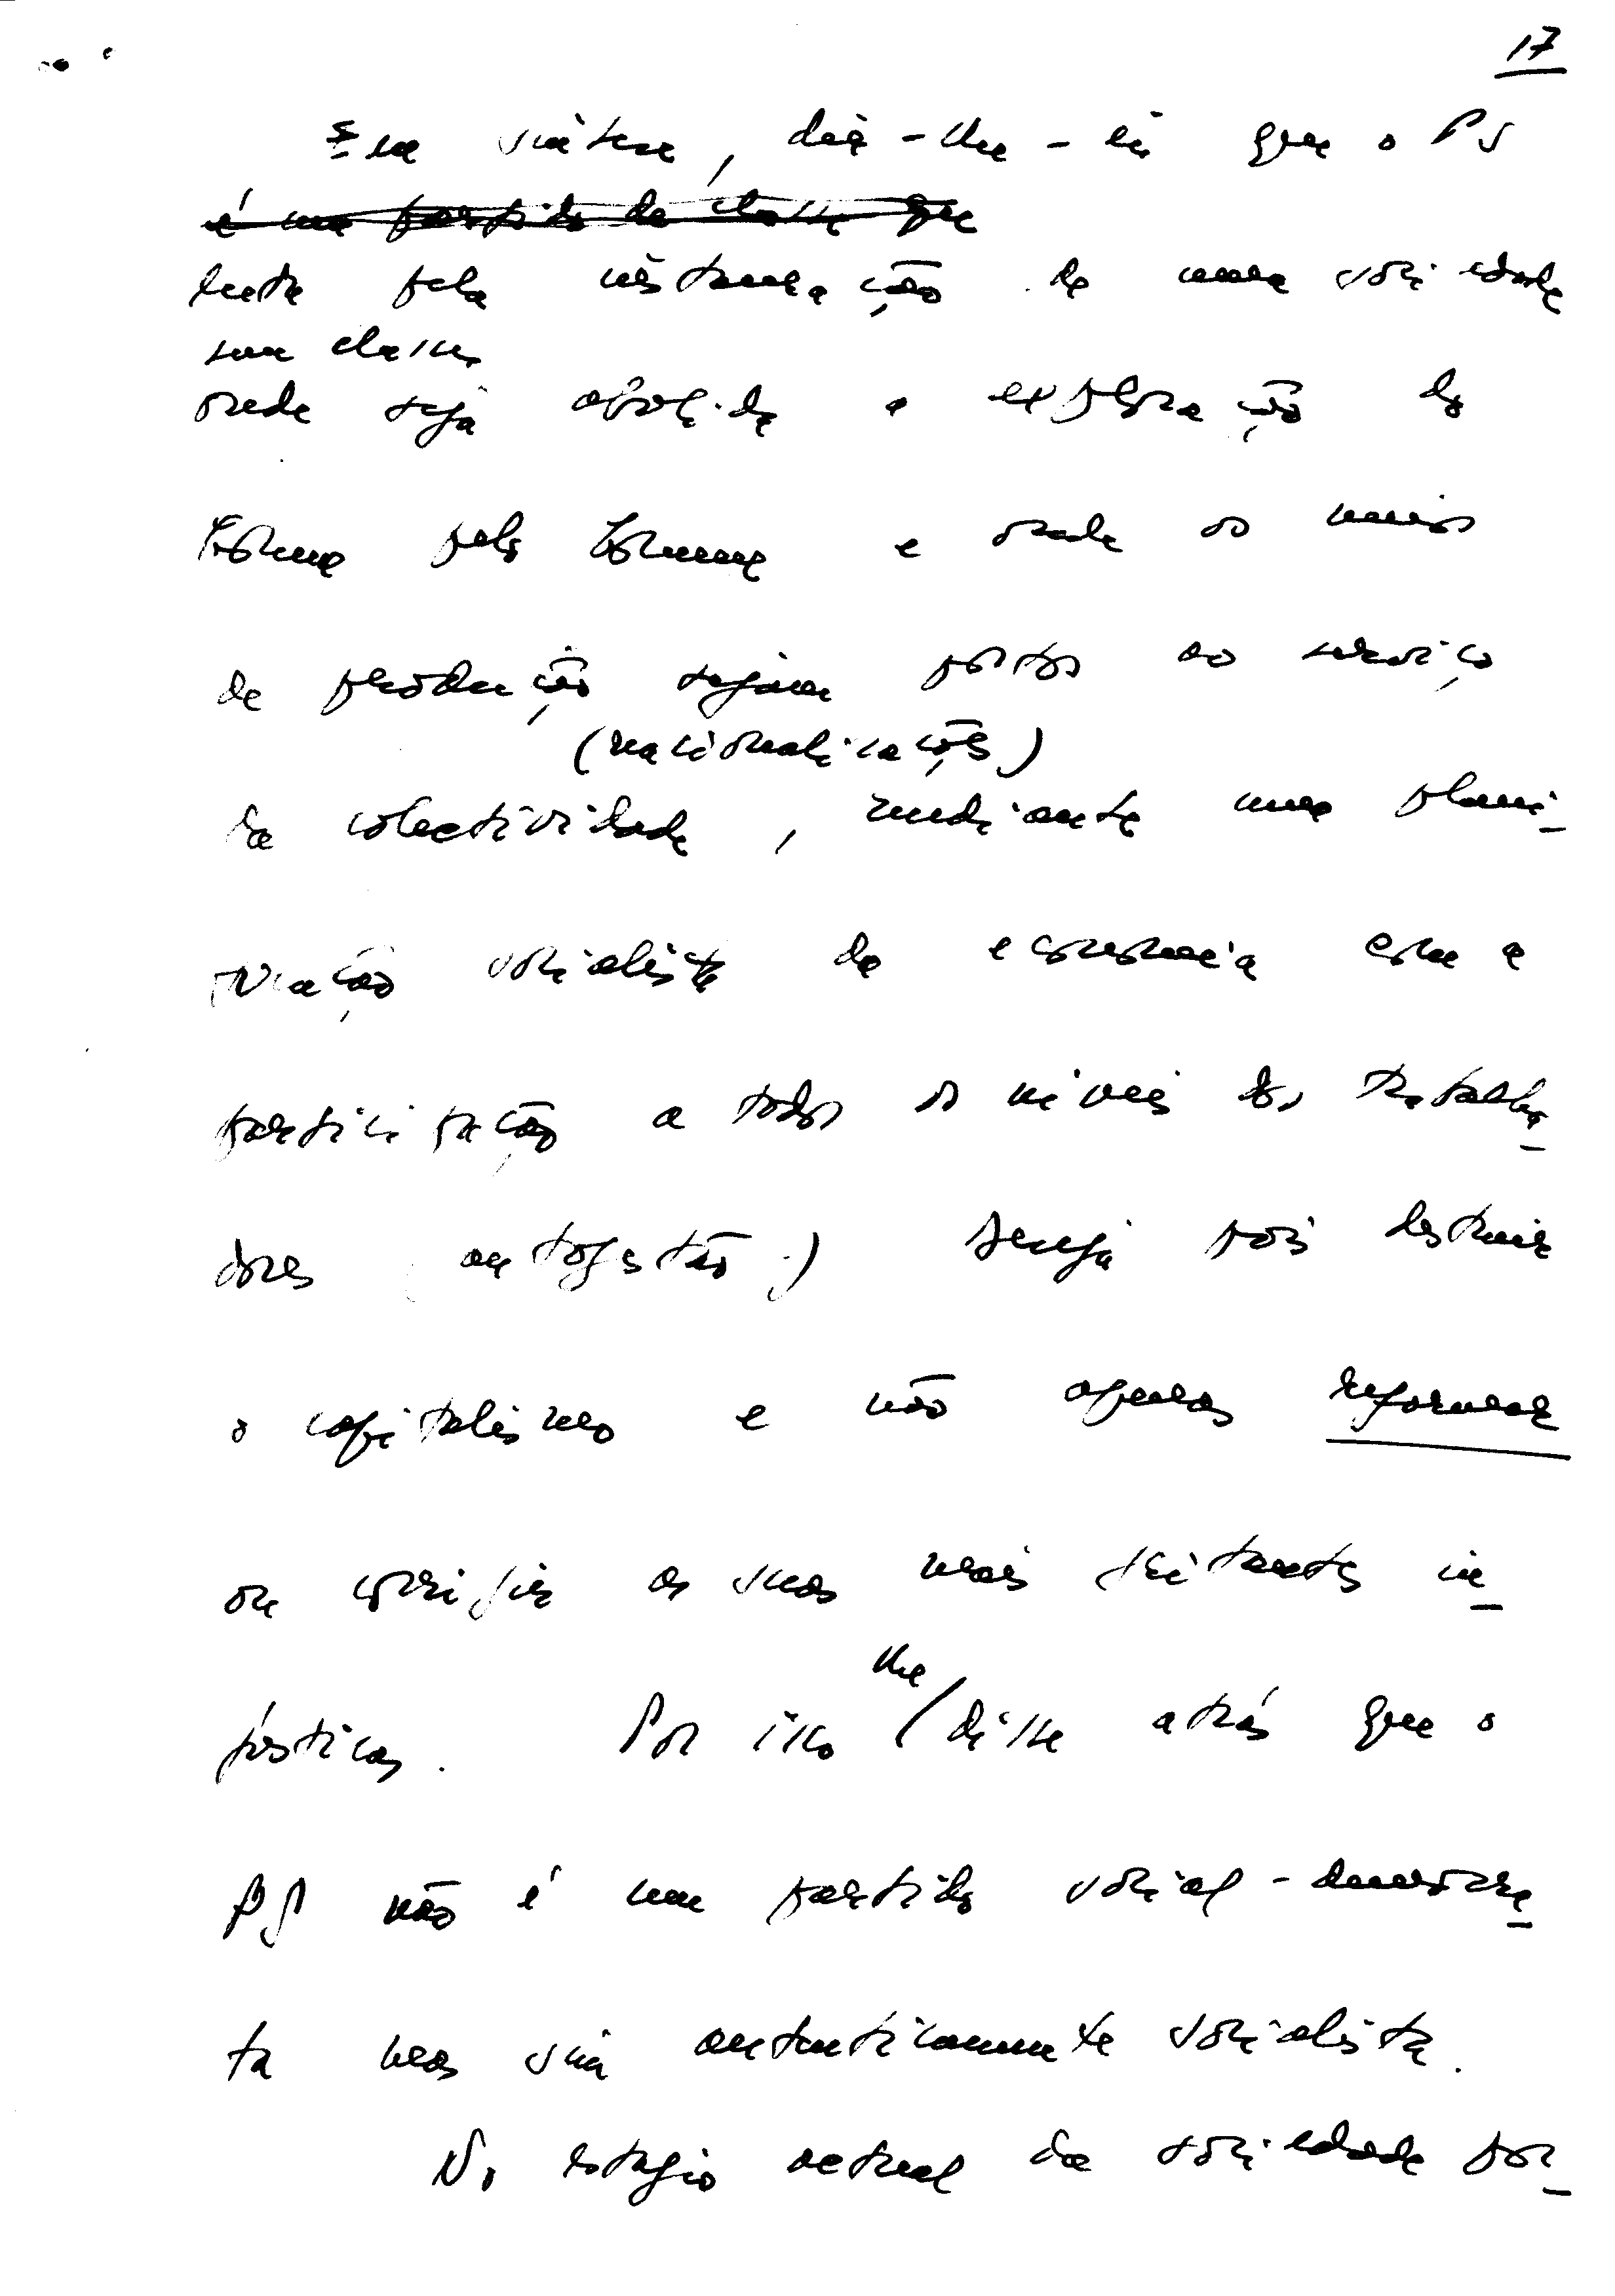 17
Em síntese, dir-lhe-ei que o PS
é um partido de classe que
luta pela instauração de uma sociedade
sem classes
onde seja abolida a exploração do
homem pelo homem e onde os meios
de produção sejam postos ao serviço
(nacionalizações)
da colectividade, mediante uma plani-
ficação socialista da economia com a
participação a todos os níveis dos trabalha-
dores (autogestão). Deseja pois destruir
o capitalismo e não apenas reformar
ou corrigir as suas mais gritantes in-
justiças. Por isso lhe disse atrás que o
PS não é um partido social-democra-
ta mas sim autenticamente socialista.
No estágio actual da sociedade por-